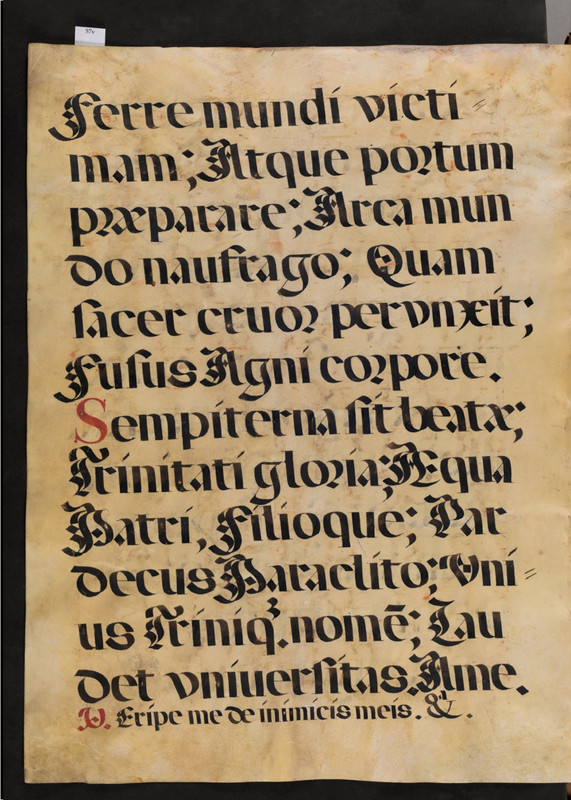 97v
Ferre mundi victi=
mam; Atque portum
præparare; Arca mun
do naufrago; Quam
ſacer cruor pervnxit;
Fuſus Agni corpore.
Sempiterna ſit beatæ;
Trinitati gloria; Æqua
Patri, Filioque; Par
decus Paraclito; Vni=
us Triniq3. nomē; Lau
det vniuerſitas. Ame.
V. Eripe me de inimicis meis. &.